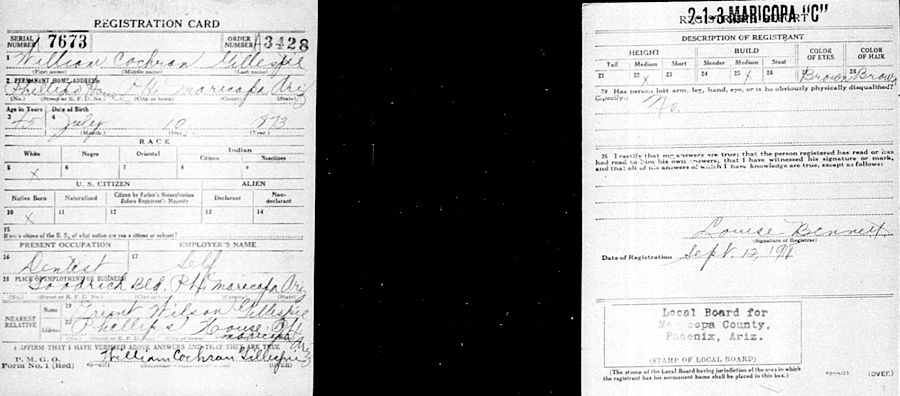 REGISTRATION CARD
SERIAL NUMBER 7673 ORDER NUMBER 3428
1 William Cochran Gillespie
(First name) (Middle name) (Last name)
2 PERMANENT HOME ADDRESS:
Phillips House Ph. Maricopa Ariz
(No.) (Street or R. F. D. No.) (City or town) (County) (State)
Age in Years Date of Birth
3 45 4 July 10 1873
(Month.) (Day.) (Year.)
RACE
White Negro Oriental Indian
Citizen Noncitizen
5 x 6 7 8 9
U. S. CITIZEN ALIEN
Native Born Naturalized Citizen by Father's Naturalization Before Registrant's Majority Declarant Non-declarant
10 x 11 12 13 14
15
If not a citizen of the U. S., of what nation are you a citizen or subject?
PRESENT OCCUPATION EMPLOYER'S NAME
16 Dentist 17 Self
18 PLACE OF EMPLOYMENT OR BUSINESS:
Goodrich Bld. Ph. Maricopa Ariz
(No.) (Street or R. F. D. No.) (City or town) (County) (State)
NEAREST RELATIVE Name 19 Grant Wilson Gillespie
Address 20 Phillips House Ph. Maricopa Ariz
(No.) (Street or R. F. D. No.) (City or town) (County) (State)
I AFFIRM THAT I HAVE VERIFIED ABOVE ANSWERS AND THAT THEY ARE TRUE
P. M. G. O.
Form No. 1 (Red) William Cochran Gillespie
(OVER)
2-1-3 MARICOPA "C"
REGISTRAR'S REPORT
DESCRIPTION OF REGISTRANT
HEIGHT BUILD COLOR OF EYES COLOR OF HAIR
Tall Medium Short Slender Medium Stout
21 22 x 23 24 25 x 26 27 Brown 28 Brown
29 Has person lost arm, leg, hand, eye, or is he obviously physically disqualified?
(Specify.) No
30 I certify that my answers are true; that the person registered has read or has
had read to him his own answers; that I have witnessed his signature or mark,
and that all of his answers of which I have knowledge are true, except as follows:
Louise Bennett
(Signature of Registrar)
Date of Registration Sept. 12, 1918
Local Board for
Maricopa County.
Phoenix, Ariz.
(STAMP OF LOCAL BOARD)
(The stamp of the Local Board having jurisdiction of the area in which
the registrant has his permanent home shall be placed in this box.)
(OVER)